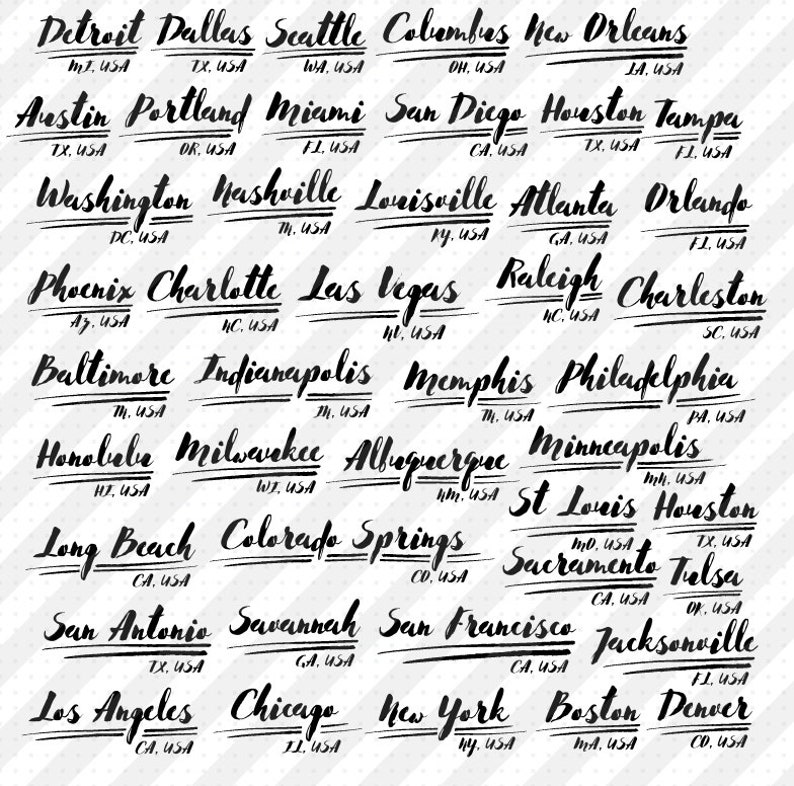 Detroit Dallas Seattle Columbus New Orleans
MI, USA TX, USA WA, USA OH, USA LA, USA
Austin Portland Miami San Diego Houston Tampa
TX, USA OR, USA FL, USA CA, USA TX, USA FL, USA
Washington Nashville Louisville Atlanta Orlando
DC, USA TN, USA KY, USA GA, USA FL, USA
Phoenix Charlotte Las Vegas Raleigh Charleston
AZ, USA NC, USA NV, USA NC, USA SC, USA
Baltimore Indianapolis Memphis Philadelphia
TN, USA IN, USA TN, USA PA, USA
Honolulu Milwaukee Albuquerque Minneapolis
HI, USA WI, USA NM, USA MN, USA
St Louis Houston
MO, USA TX, USA
Long Beach Colorado Springs Sacramento Tulsa
CA, USA CO, USA CA, USA OK, USA
San Antonio Savannah San Francisco Jacksonville
TX, USA GA, USA CA, USA FL, USA
Los Angeles Chicago New York Boston Denver
CA, USA IL, USA NY, USA MA, USA CO, USA